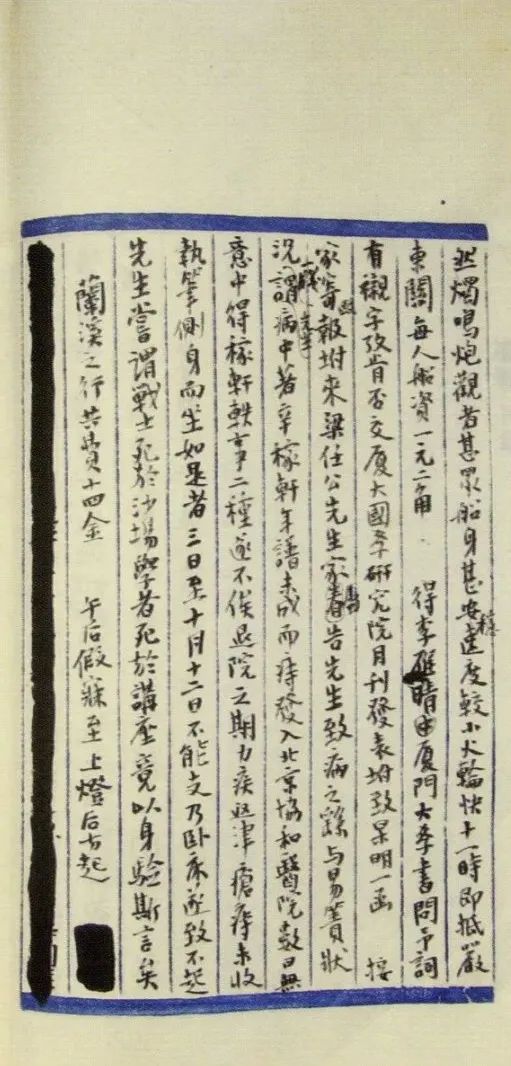 燃燭鳴炮觀者甚眾船身甚安穩速度較小火輪快十一時即抵嚴
東關每人船資一元二角 得李雁晴由廈門大學書問予詞
有襯字攷肯否交廈大國學研究院月刊發表坿致杲明一函 接
家寄報坿來梁任公先生家書告先生致病之繇與易簀狀
況謂病中著辛稼軒年譜未成而痔發入北京協和醫院數日無
意中得稼軒軼事二種遂不俟退院之期力疾返津瘡痔未收
執筆側身而坐如是者三日至十月十二日不能支乃臥床遂致不起
先生嘗謂戰士死於沙場學者死於講座竟以身驗斯言矣
蘭溪之行共費十四金 午后假寐至上燈后方起